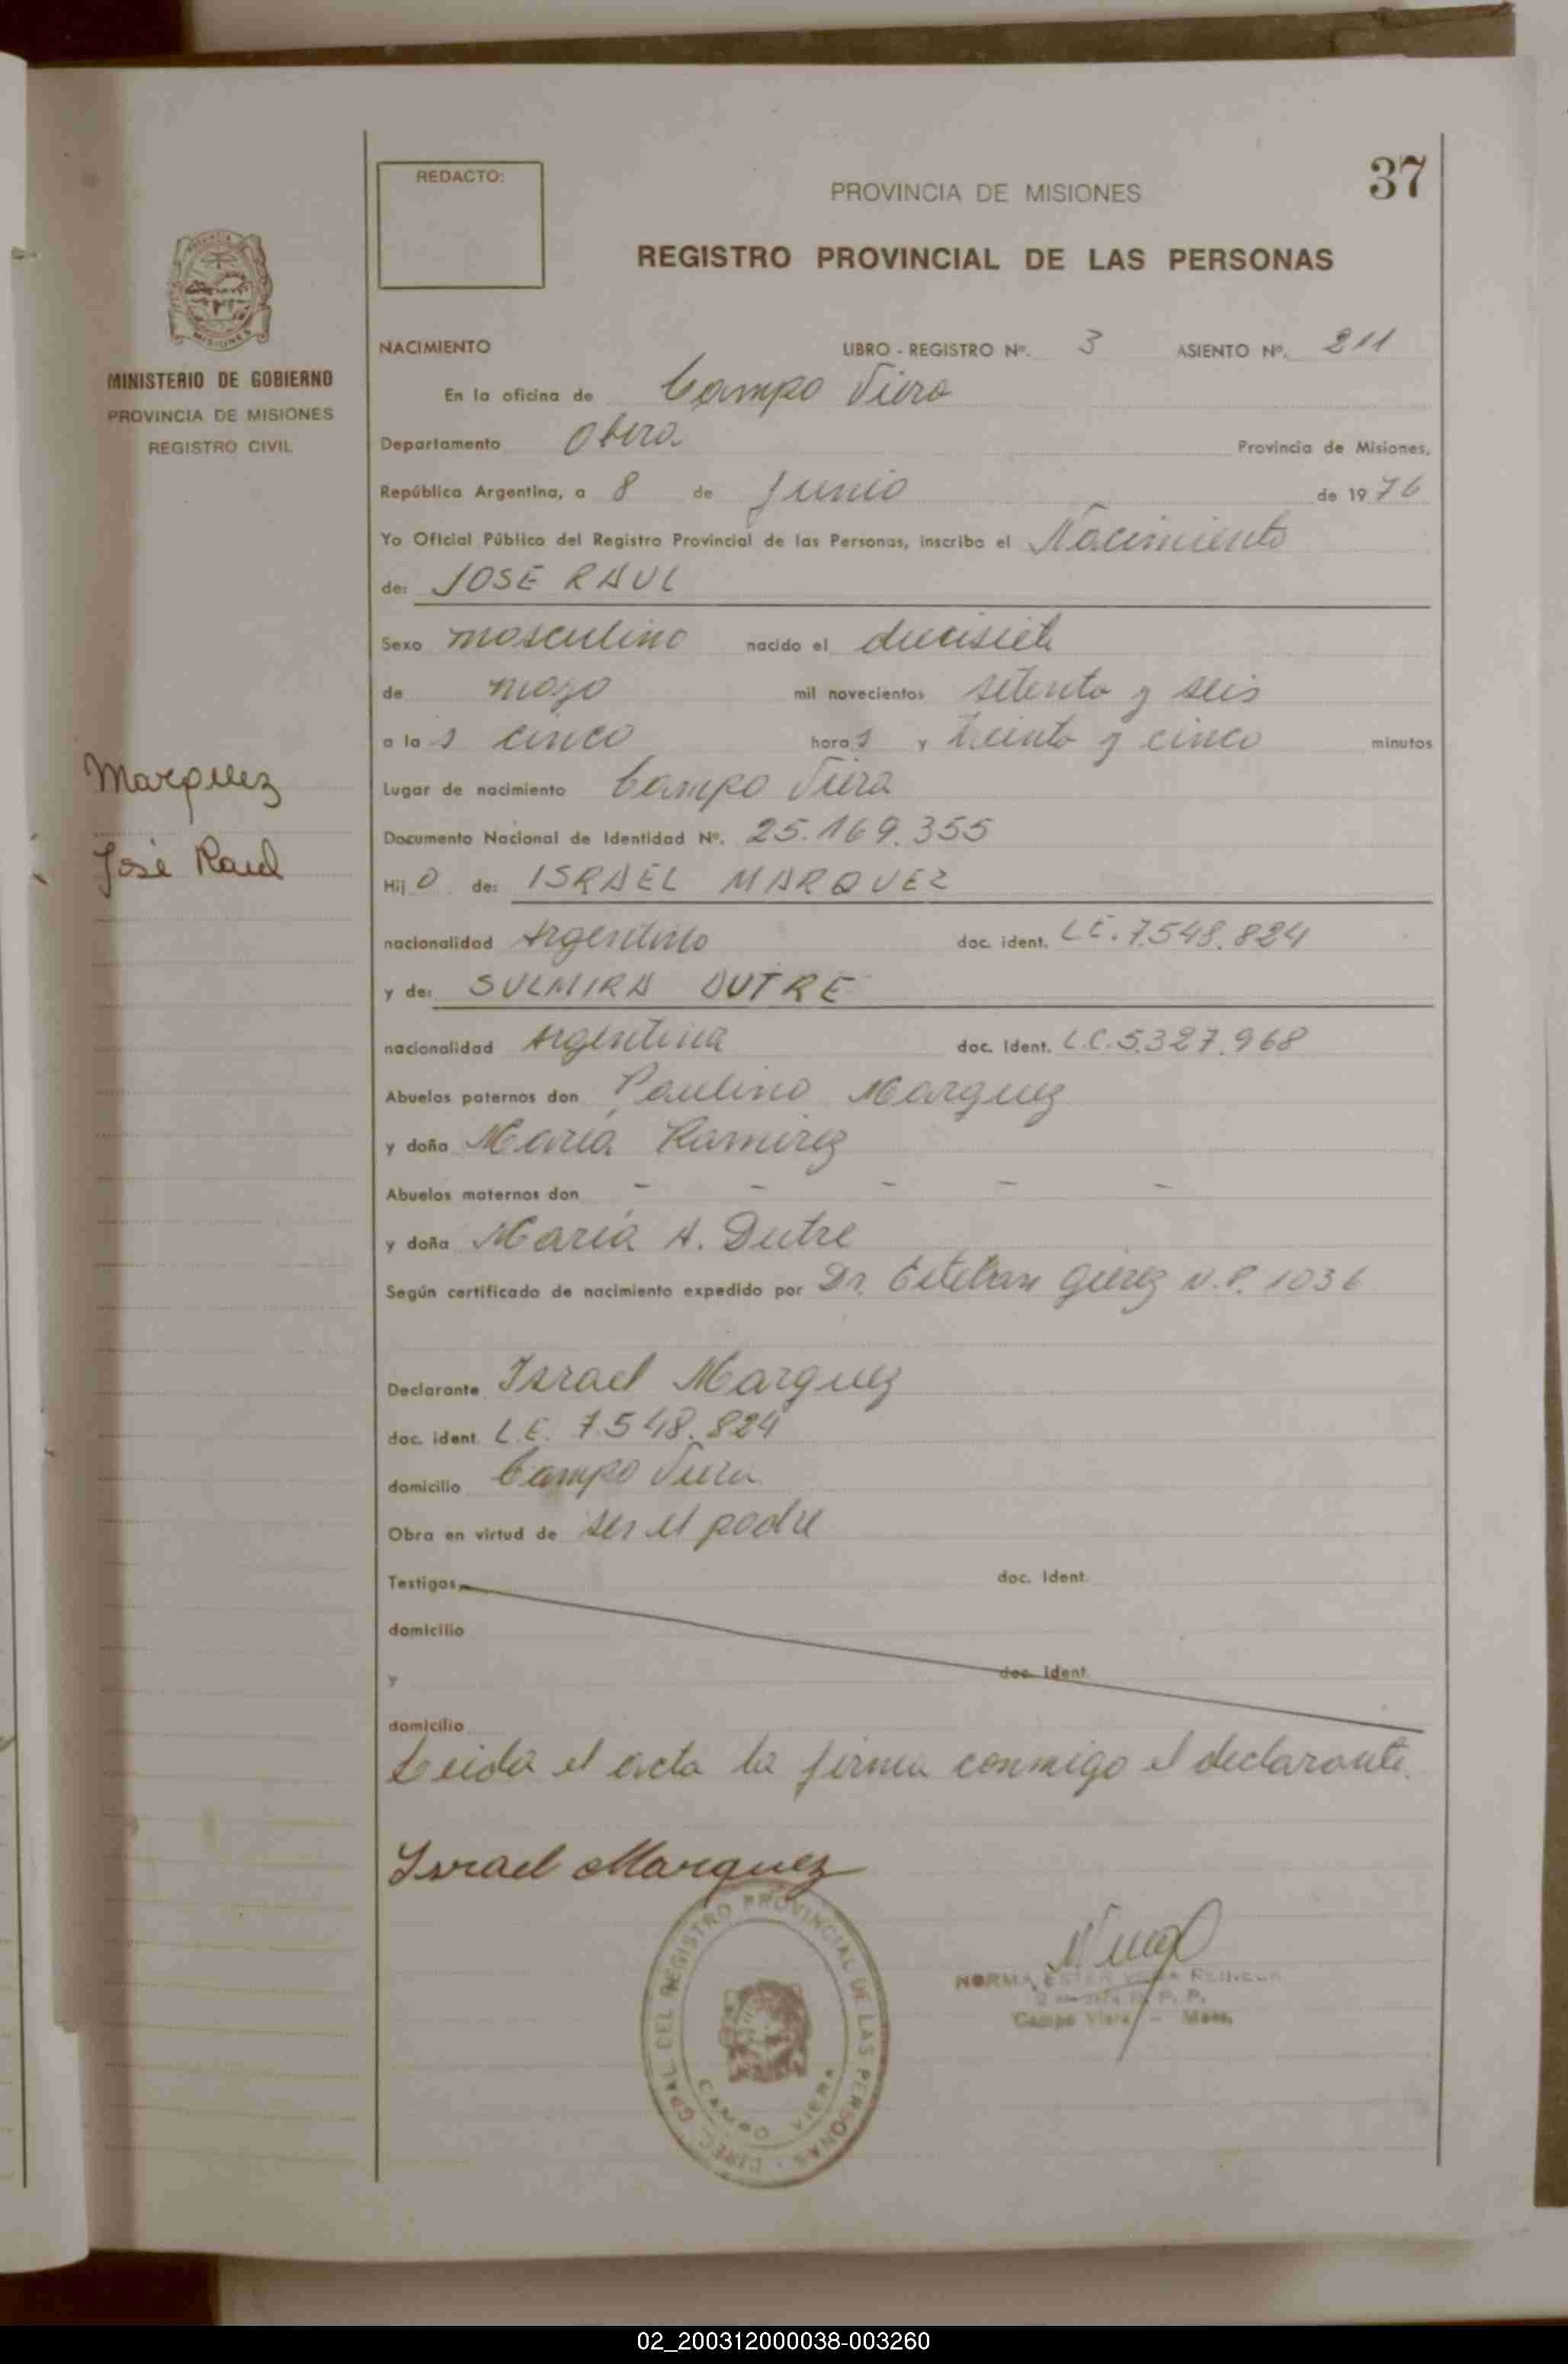 37
REDACTO:
PROVINCIA DE MISIONES
REGISTRO PROVINCIAL DE LAS PERSONAS
MISIONES
MINISTERIO DE GOBIERNO
PROVINCIA DE MISIONES
REGISTRO CIVIL
Marquez
José Raul
NACIMIENTO LIBRO - REGISTRO Nº. 3 ASIENTO Nº. 211
En la oficina de Campo Viera
Departamento Obera Provincia de Misiones,
República Argentina, a 8 de Junio de 1976
Yo Oficial Público del Registro Provincial de las Personas, inscribo el Nacimiento
de: JOSE RAUL
Sexo masculino nacido el diecisiete
de mayo mil novecientos setenta y seis
a las cinco horas y treinta y cinco minutos
Lugar de nacimiento Campo Viera
Documento Nacional de Identidad Nº. 25.169.355
Hijo de: ISRAEL MARQUEZ
nacionalidad Argentino doc. ident. L.E. 7.548.824
y de: SULMIRA DUTRE
nacionalidad Argentina doc. ident. L.C. 5.327.968
Abuelos paternos don Paulino Marquez
y doña María Ramirez
Abuelos maternos don - - - - -
y doña María A. Dutre
Según certificado de nacimiento expedido por Dr. Esteban N.P. 1036
Declarante Israel Marquez
doc. ident. L.E. 7.548.824
domicilio Campo Viera
Obra en virtud de ser el padre
Testigos doc. ident.
domicilio
y doc. ident.
domicilio
Leida el acta la firma conmigo el declarante.
Israel Marquez
DIREC. GRAL DEL REGISTRO PROVINCIAL DE LAS PERSONAS
CAMPO VIERA
NORMA ESTER
Campo Viera - Mnes.
02_200312000038-003260